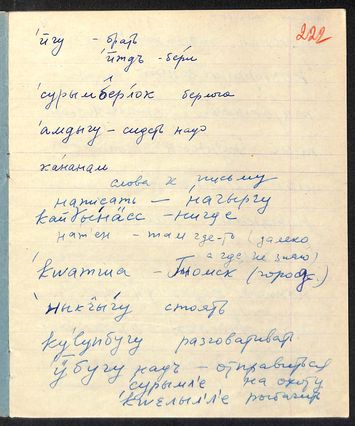 222
'йгу - брать
'йтдъ - бери
'сурым б̂ер'лок берлога
'амдыгу - сидеть надо
ка́нанам
слова к письму
написать - на́чыргу
кайбы́нӓсс - нигде
нат'ен - там где-то (далеко
а где не знаю)
'kwатша - Томск (город.)
'ныкӷы́гу стоять
ку'лупбугу разговаривать
ӱ́бугу надъ - отправиться
сурымл'е на охоту
'kwелыл'л'е рыбачить